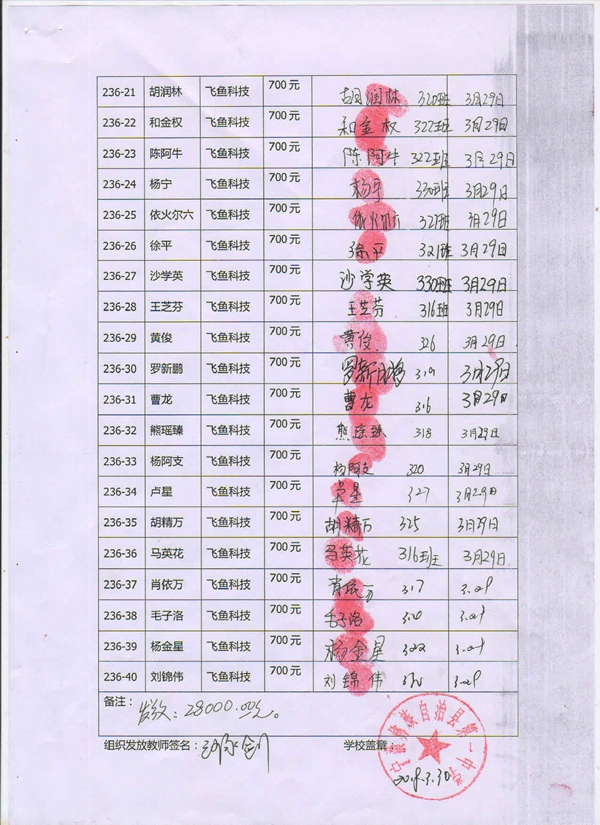 236-21 胡润林 飞鱼科技 700元 胡润林 320班 3月29日
236-22 和金权 飞鱼科技 700元 和金权 322班 3月29日
236-23 陈阿牛 飞鱼科技 700元 陈阿牛 322班 3月29日
236-24 杨宁 飞鱼科技 700元 杨宁 330班 3月29日
236-25 依火尔六 飞鱼科技 700元 依火尔六 321班 3月29日
236-26 徐平 飞鱼科技 700元 徐平 321班 3月29日
236-27 沙学英 飞鱼科技 700元 沙学英 330班 3月29日
236-28 王芝芬 飞鱼科技 700元 王芝芬 316班 3月29日
236-29 黄俊 飞鱼科技 700元 黄俊 326 3月29日
236-30 罗新鹏 飞鱼科技 700元 罗新鹏 319 3月29日
236-31 曹龙 飞鱼科技 700元 曹龙 316 3月29日
236-32 熊瑶臻 飞鱼科技 700元 熊瑶臻 318 3月29日
236-33 杨阿支 飞鱼科技 700元 杨阿支 320 3月29日
236-34 卢星 飞鱼科技 700元 卢星 327 3月29日
236-35 胡精万 飞鱼科技 700元 胡精万 325 3月29日
236-36 马英花 飞鱼科技 700元 马英花 316班 3月29日
236-37 肖依万 飞鱼科技 700元 肖依万 317 3.29
236-38 毛子洛 飞鱼科技 700元 毛子洛 3.29
236-39 杨金星 飞鱼科技 700元 杨金星 322 3.29
236-40 刘锦伟 飞鱼科技 700元 刘锦伟 3.29
备注：
发放：28000.00元。
组织发放教师签名： 学校盖章：
宁蒗彝族自治县第一中学
2018.3.30